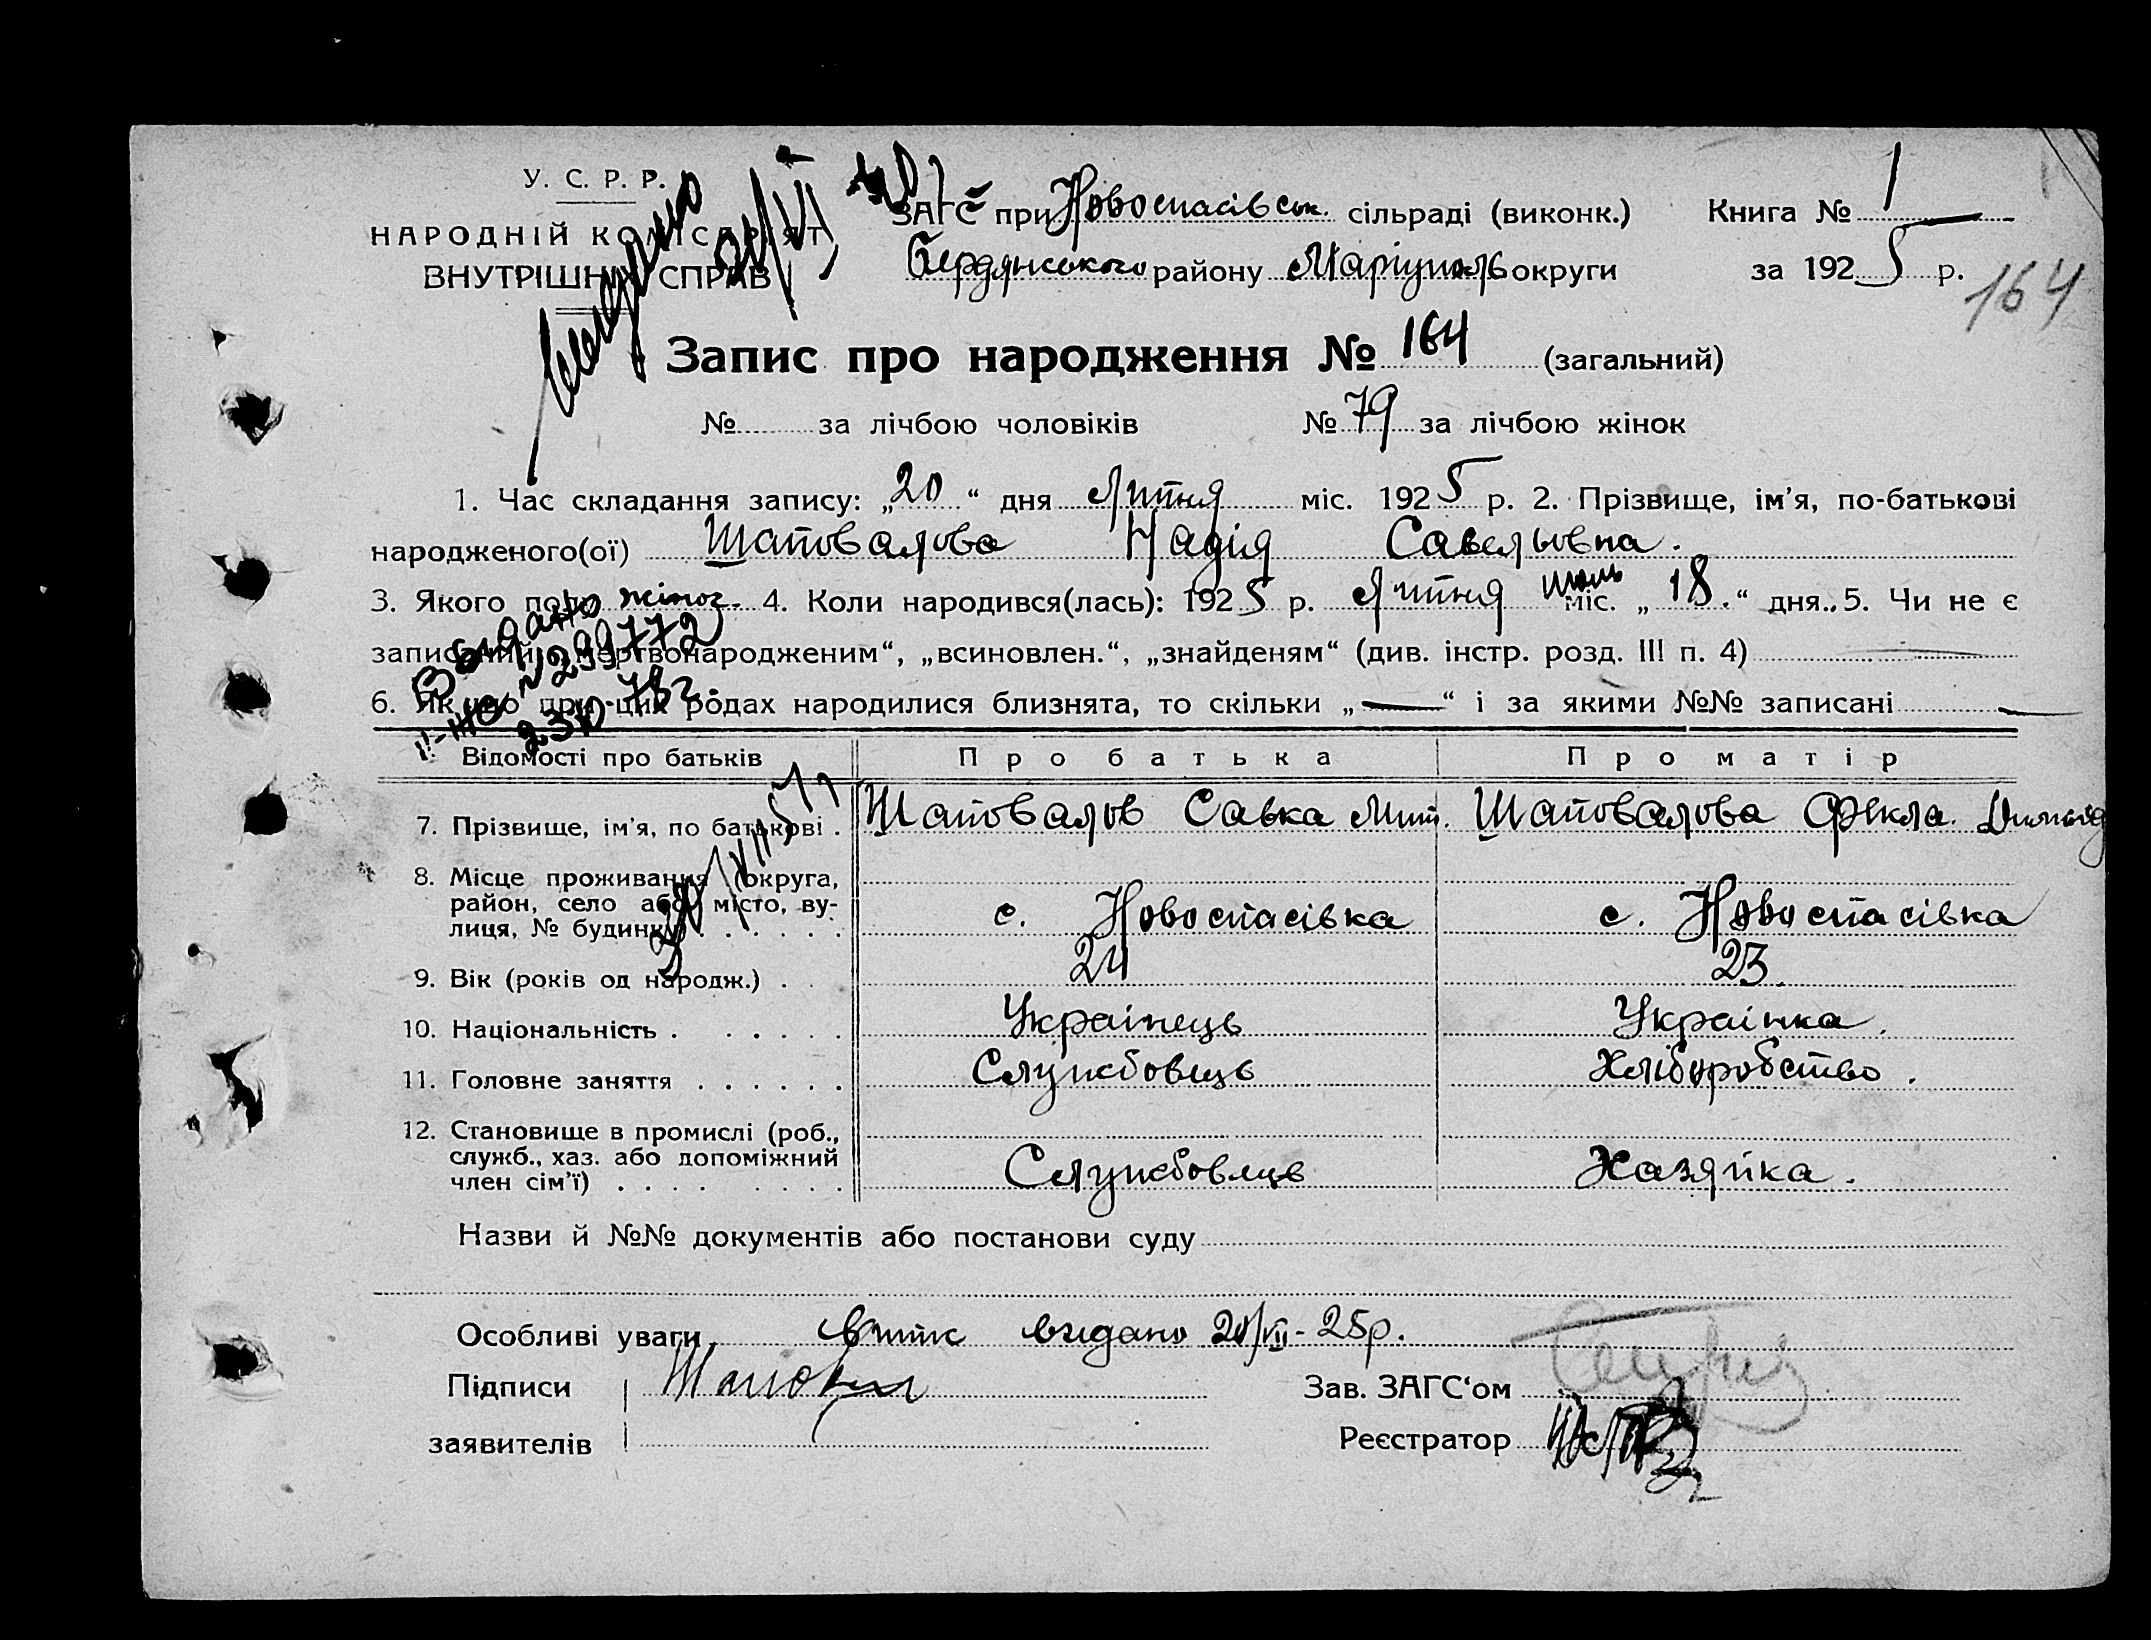 У. С. Р. Р.
НАРОДНІЙ КОМІСАРІЯТ
ВНУТРІШНІХ СПРАВ
ЗАГС при Новоспасівськ. сільраді (виконк.) Книга № 1
Бердянського району Маріуполь округи за 1925 р.
164
Запис про народження № 164 (загальний)
№ за лічбою чоловіків № 79 за лічбою жінок
1. Час складання запису: „20“ дня Липня міс. 1925 р. 2. Прізвище, ім’я, по-батькові
народженого(ої) Шаповалова Надія Савельовна.
3. Якого полу жіноч. 4. Коли народився(лась): 1925 р. Липня июль міс. „18.“ дня. 5. Чи не є
записаний „мертвонародженим“, „всиновлен.“, „знайденям“ (див. інстр. розд. III п. 4)
6. Якщо при цих родах народилися близнята, то скільки „—“ і за якими №№ записані —
Выдано
№ 299772
78г.
Відомості про батьків Про батька Про матір
7. Прізвище, ім’я, по батькові . Шаповалов Савка Мит. Шаповалова Фекла
8. Місце проживання (округа,
район, село або місто, ву-
лиця, № будинку) . . . . . . с. Новоспасівка с. Новоспасівка
9. Вік (років од народж.) . . 24 23.
10. Національність . . . . . . Українець Українка.
11. Головне заняття . . . . . . Службовець Хліборобство.
12. Становище в промислі (роб.,
служб., хаз. або допоміжний
член сім’ї) . . . . . . . . Службовець Хазяйка.
Назви й №№ документів або постанови суду
Особливі уваги витяг видано 20/VII-25р.
Підписи Зав. ЗАГС‘ом
заявителів Реєстратор